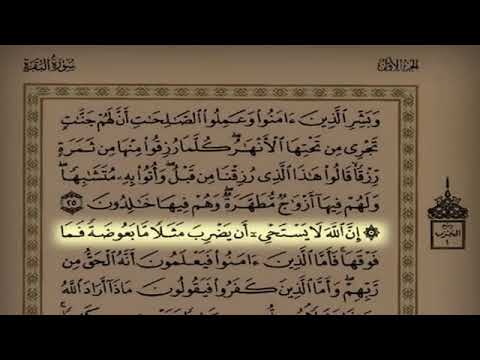 الجزء الأول
سورة البقرة
وَبَشِّرِ ٱلَّذِينَ ءَامَنُوا۟ وَعَمِلُوا۟ ٱلصَّـٰلِحَـٰتِ أَنَّ لَهُمْ جَنَّـٰتٍ
تَجْرِى مِن تَحْتِهَا ٱلْأَنْهَـٰرُ ۖ كُلَّمَا رُزِقُوا۟ مِنْهَا مِن ثَمَرَةٍ
رِّزْقًا ۙ قَالُوا۟ هَـٰذَا ٱلَّذِى رُزِقْنَا مِن قَبْلُ ۖ وَأُتُوا۟ بِهِۦ مُتَشَـٰبِهًا ۖ
وَلَهُمْ فِيهَآ أَزْوَٰجٌ مُّطَهَّرَةٌ ۖ وَهُمْ فِيهَا خَـٰلِدُونَ ٢٥
۞ إِنَّ ٱللَّهَ لَا يَسْتَحْىِۦٓ أَن يَضْرِبَ مَثَلًا مَّا بَعُوضَةً فَمَا
فَوْقَهَا ۚ فَأَمَّا ٱلَّذِينَ ءَامَنُوا۟ فَيَعْلَمُونَ أَنَّهُ ٱلْحَقُّ مِن
رَّبِّهِمْ ۖ وَأَمَّا ٱلَّذِينَ كَفَرُوا۟ فَيَقُولُونَ مَاذَآ أَرَادَ ٱللَّهُ
ربع
الحزب
١